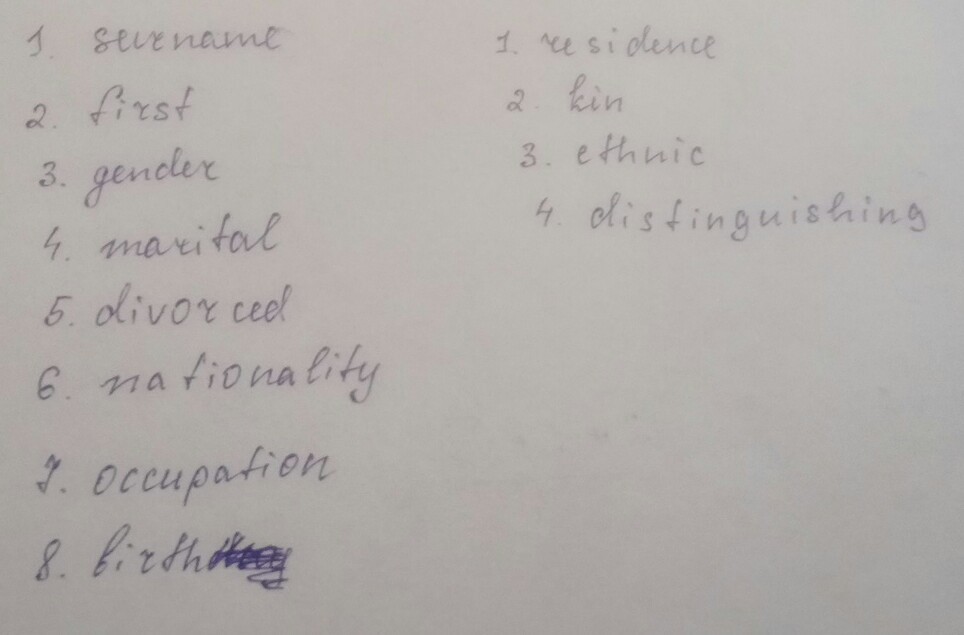 1. surname
2. first
3. gender
4. marital
5. divorced
6. nationality
7. occupation
8. birth
1. residence
2. kin
3. ethnic
4. distinguishing